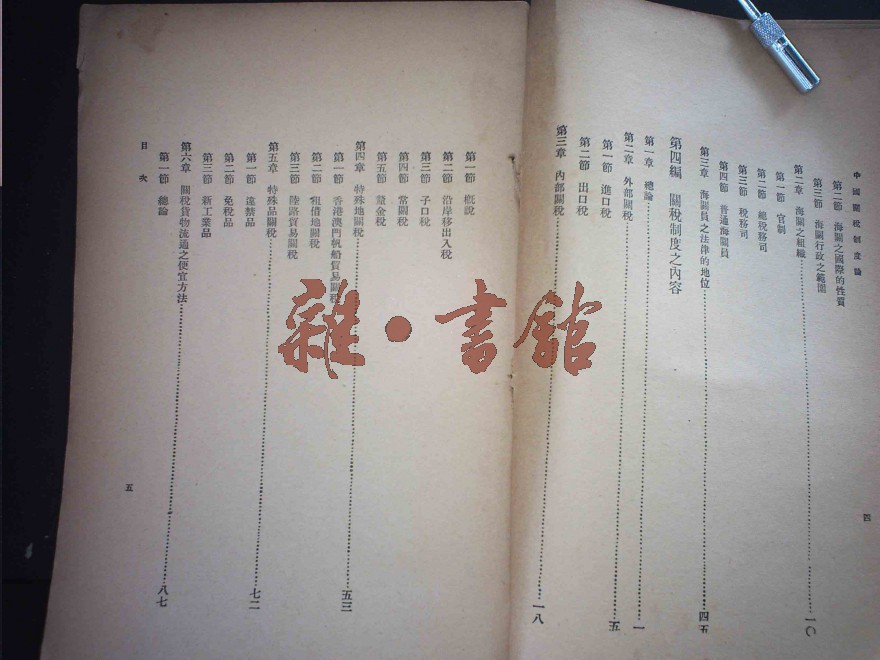 中國關稅制度論
第二節 海關之國際的性質
第三節 海關行政之範圍
第二章 海關之組織……一〇
第一節 官制
第二節 總稅務司
第三節 稅務司
第四節 普通海關員
第三章 海關員之法律的地位……四五
第四編 關稅制度之內容
第一章 總論……一
第二章 外部關稅……五
第一節 進口稅
第二節 出口稅
第三章 內部關稅……一八
四
第一節 概說
第二節 沿岸移出入稅
第三節 子口稅
第四節 常關稅
第五節 釐金稅
第四章 特殊地關稅……五三
第一節 香港澳門帆船貿易關稅
第二節 租借地關稅
第三節 陸路貿易關稅
第五章 特殊品關稅……七二
第一節 違禁品
第二節 免稅品
第三節 新工業品
第六章 關稅貨物流通之便宜方法……八七
第一節 總論
目次
五
雜·書館